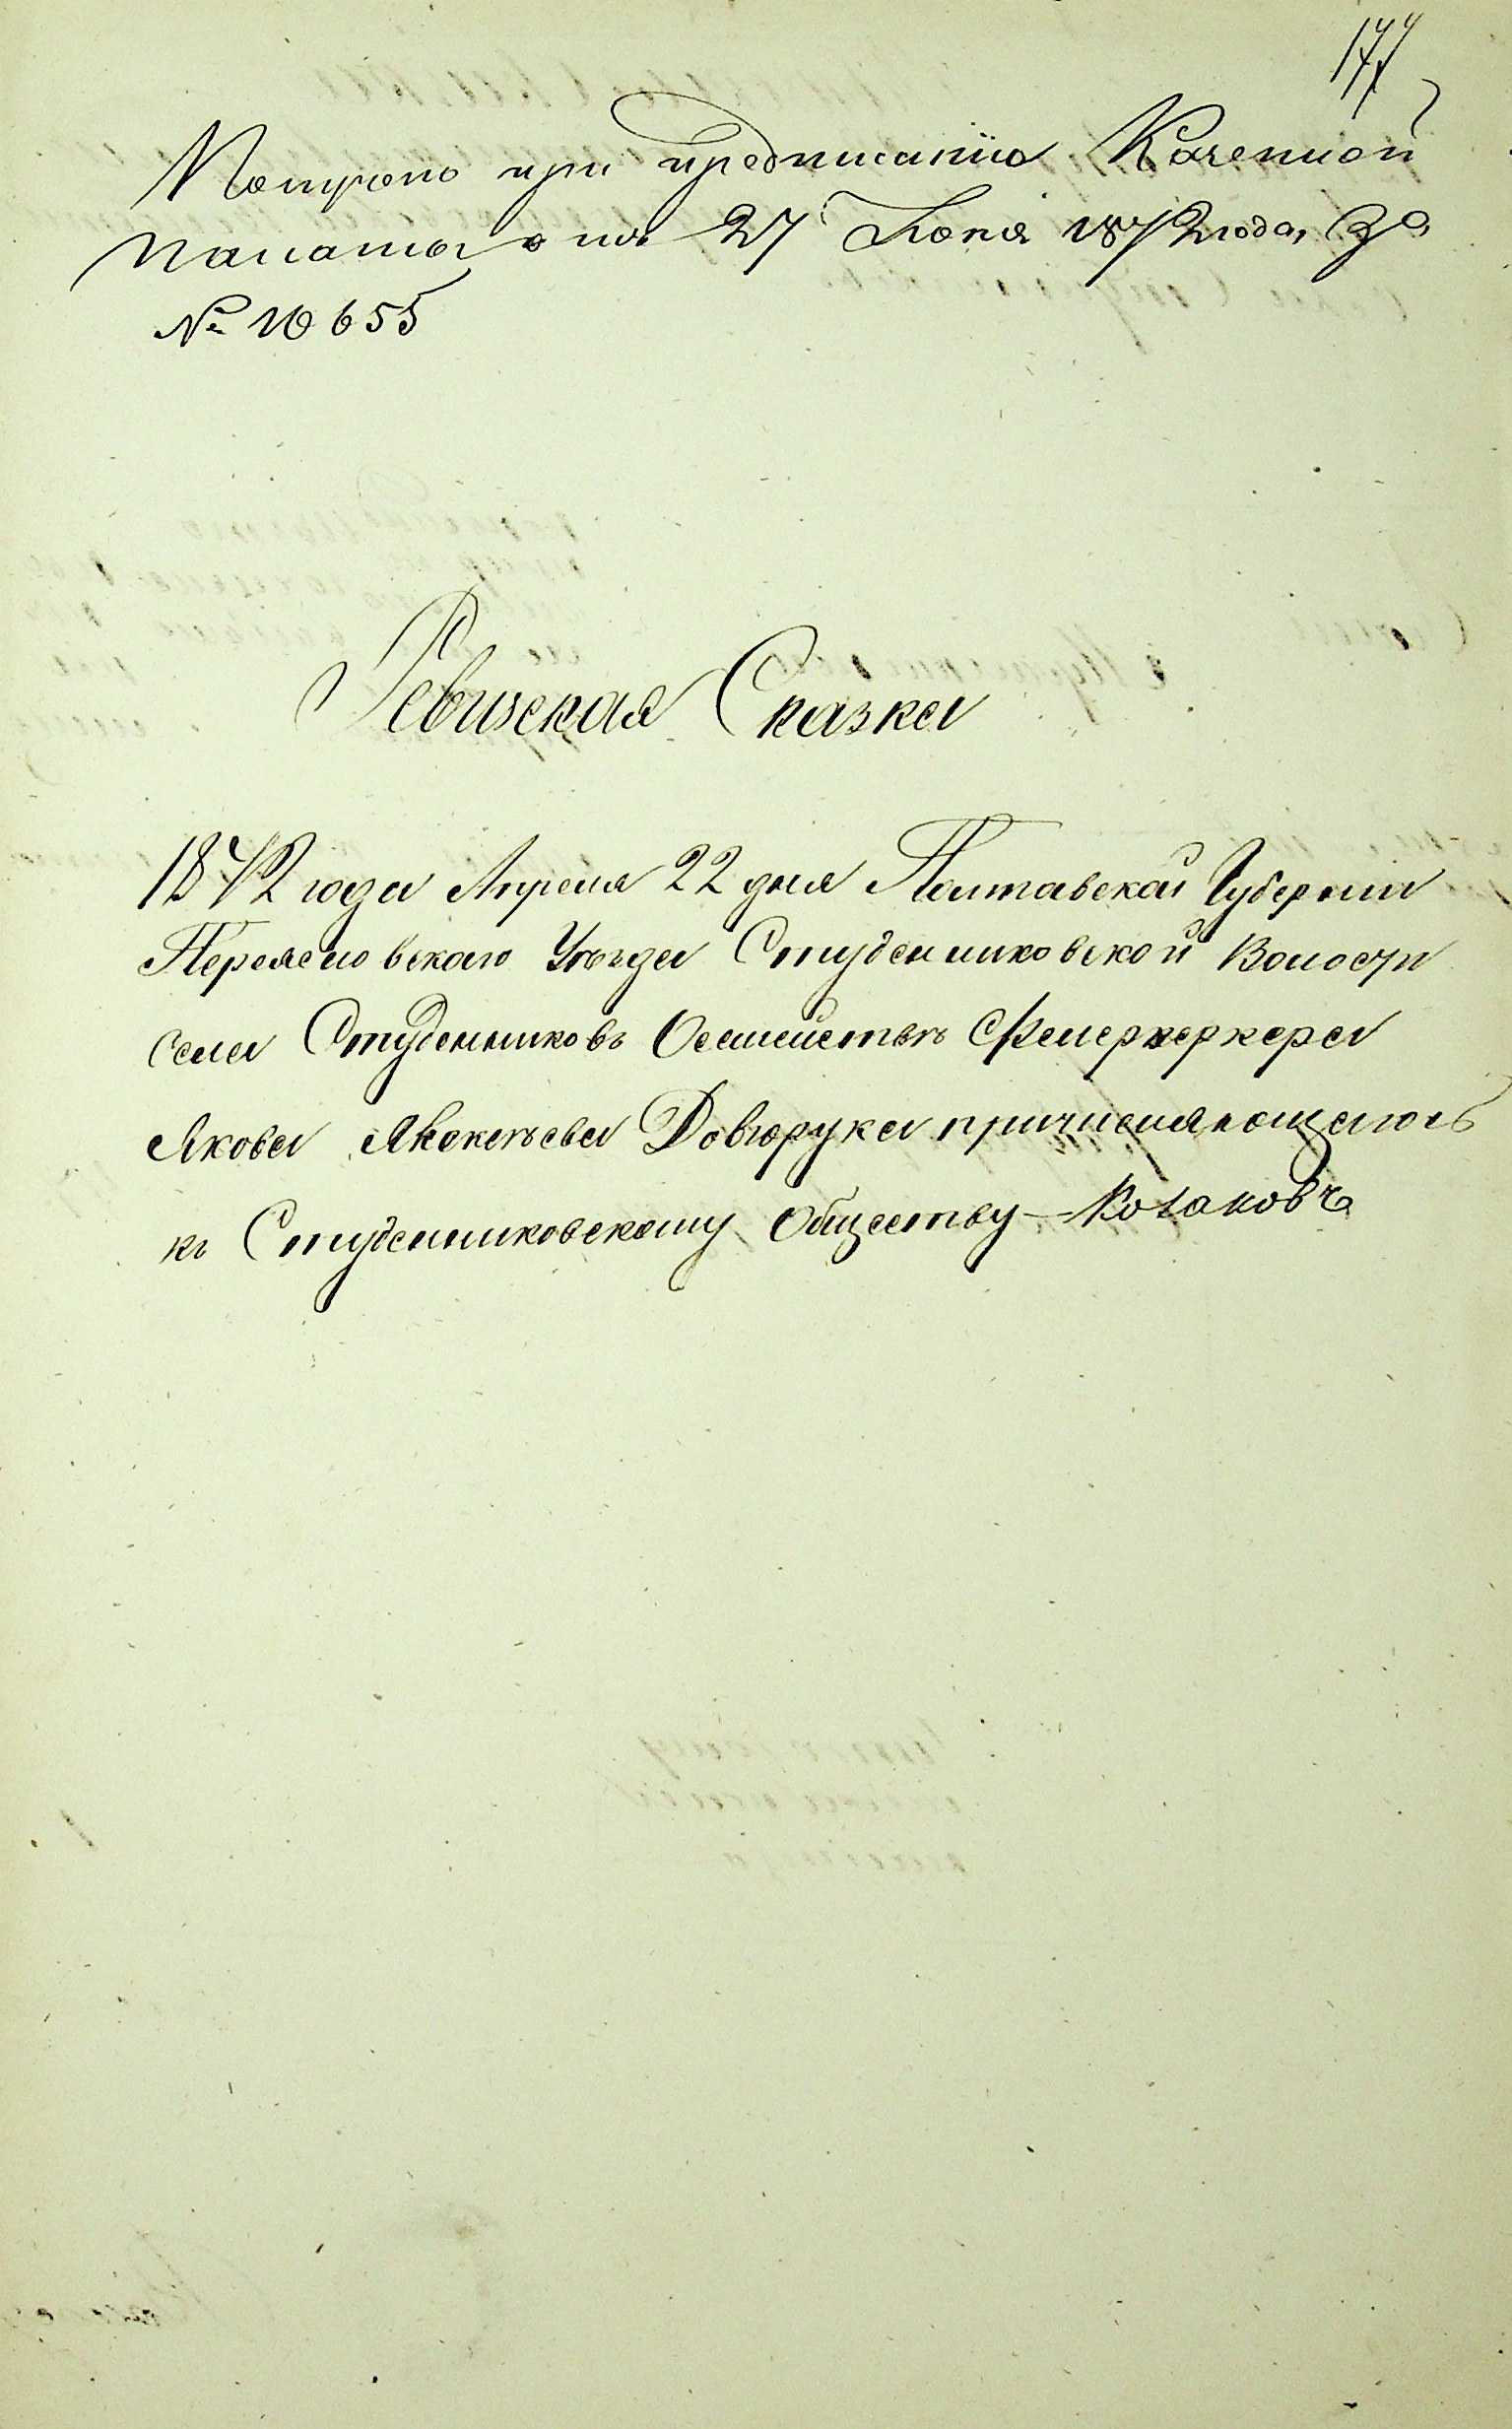 177
Получено при предписанiи Казенной
Палаты отъ 27 Iюня 1872 года, за
№ 10655
Ревизская Сказка
1872 года Апреля 22 дня Полтавской Губернiи
Переяславскаго Уѣзда Студенниковской Волости
села Студенниковъ О семействѣ Фейерверкера
Якова Яковлева Довгорука причисляющагось
къ Студенниковскому Обществу – Козаковъ